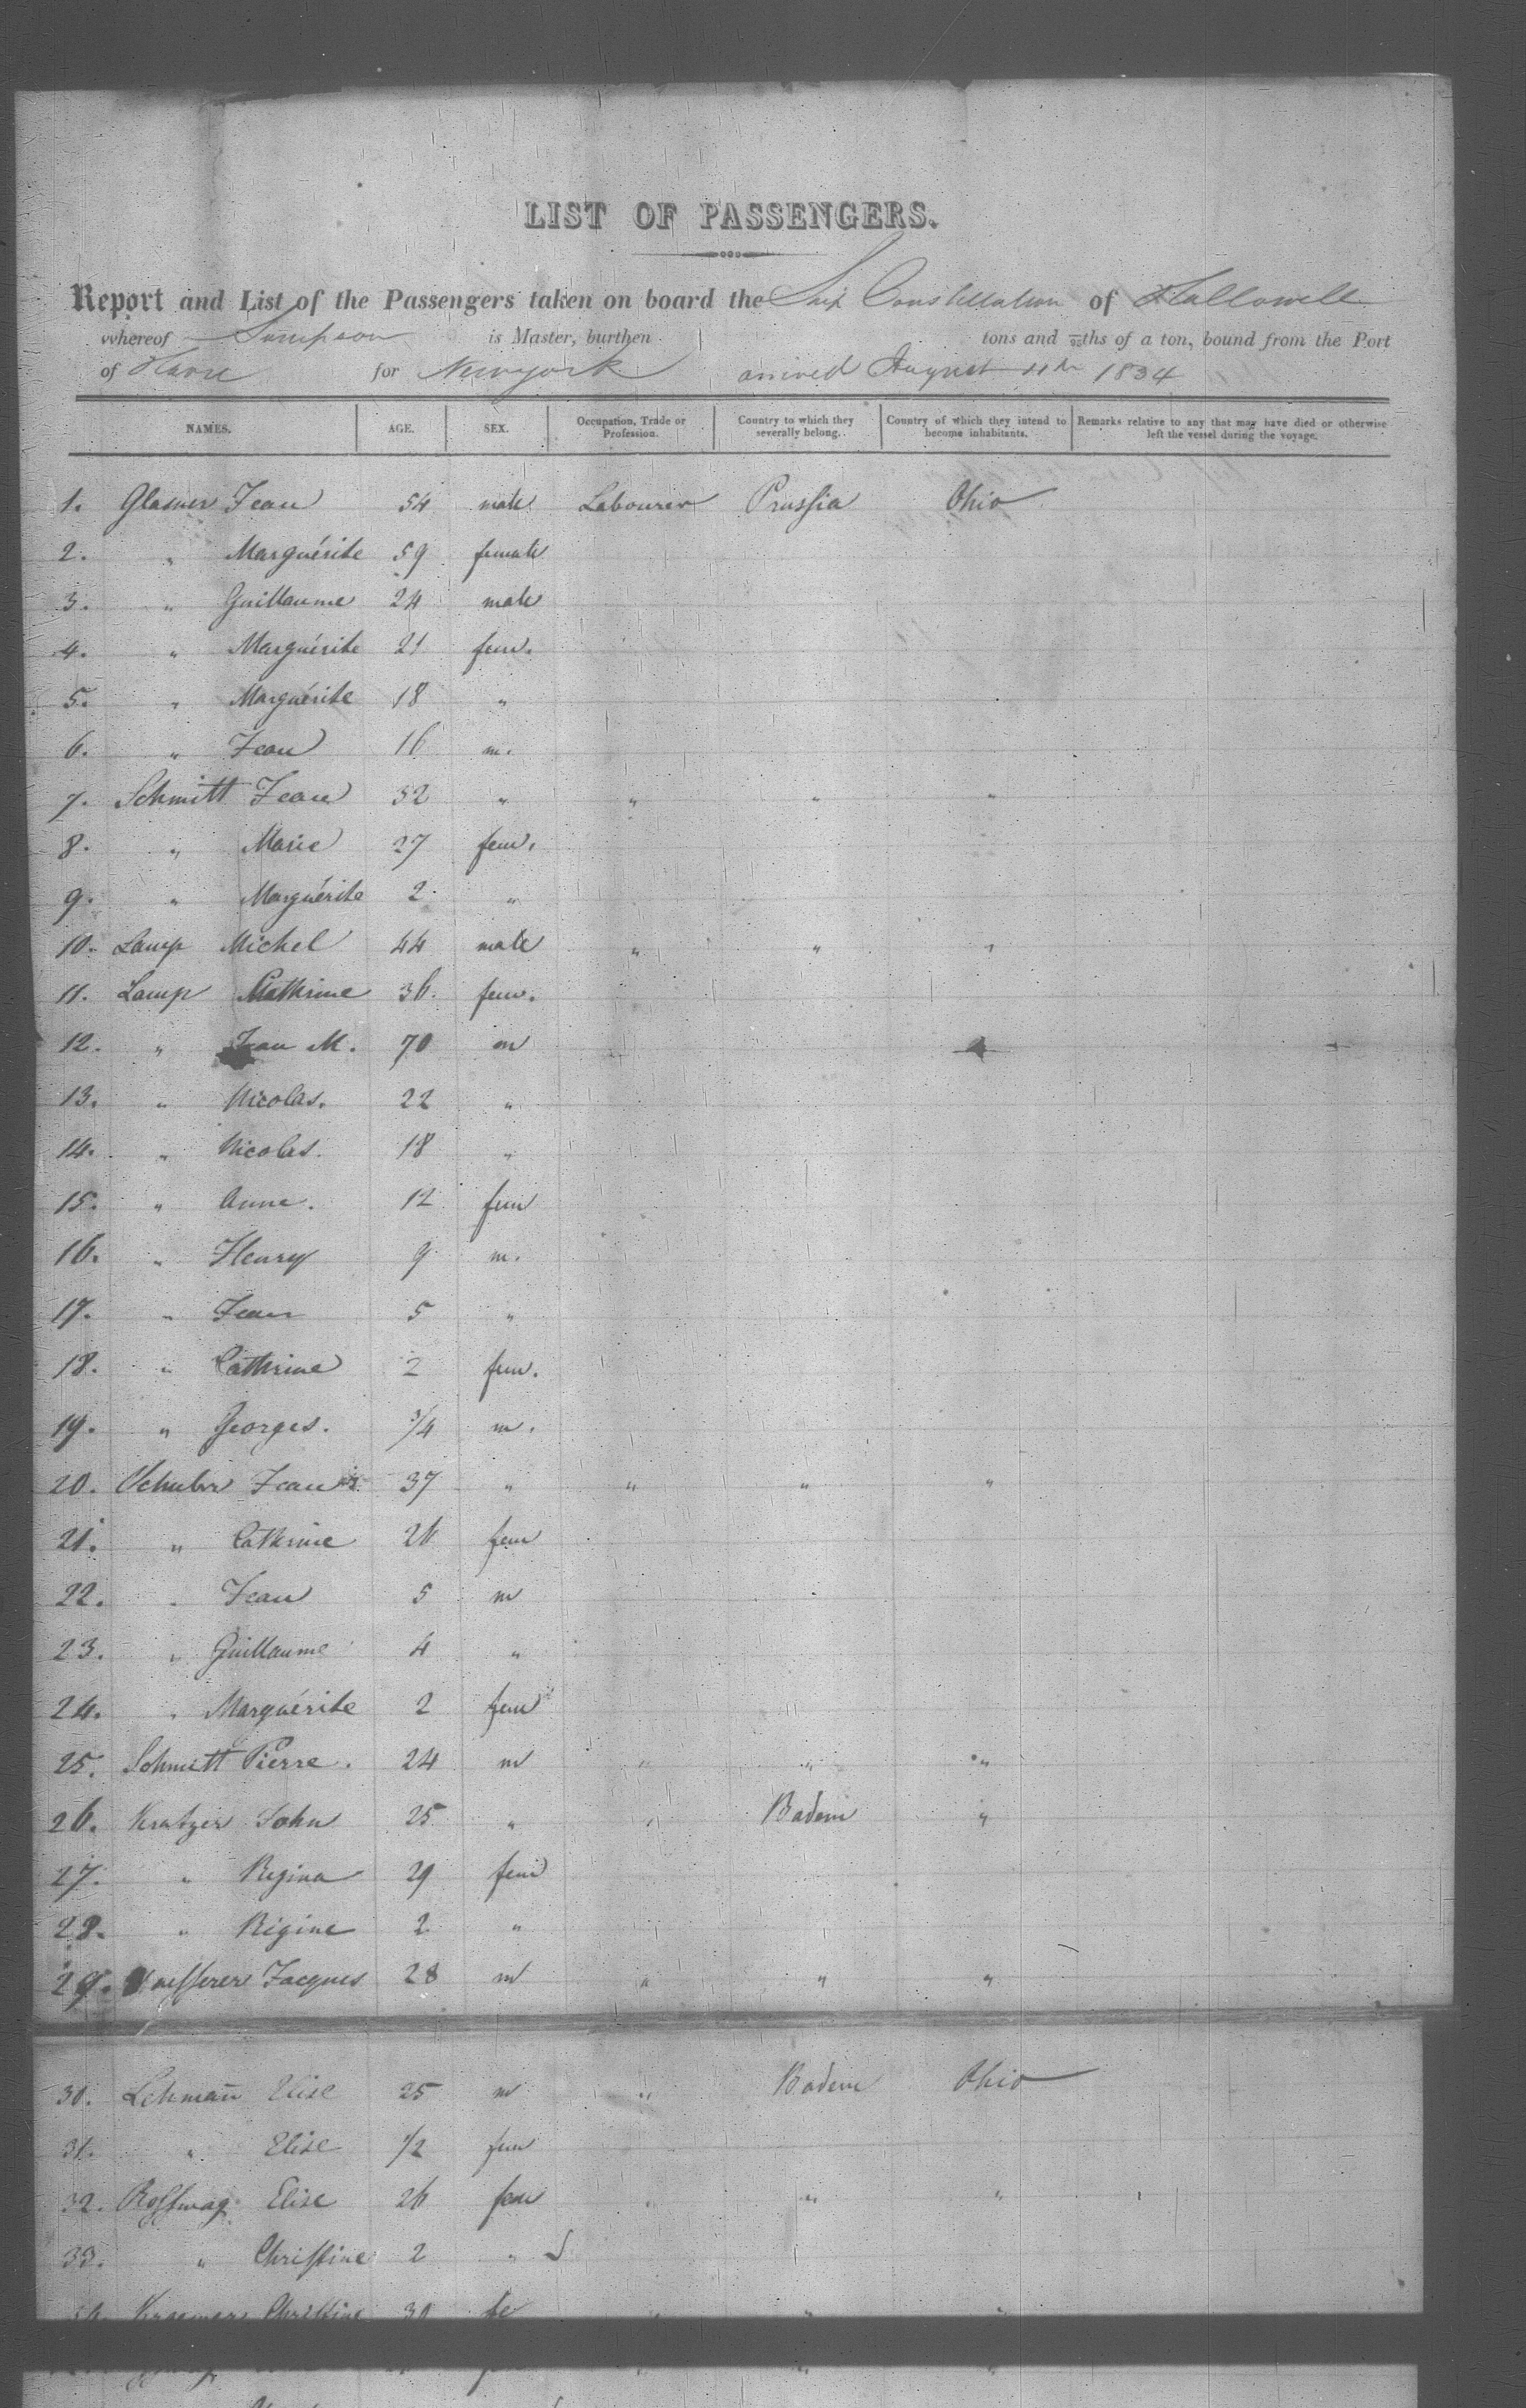 LIST OF PASSENGERS.
Report and List of the Passengers taken on board the Ship Constellation of Hallowell
whereof Simpson is Master, burthen tons and 95ths of a ton, bound from the Port
of Havre for Newyork arrived August 11th 1834
NAMES. AGE. SEX. Occupation, Trade or Profession. Country to which they severally belong. Country of which they intend to become inhabitants. Remarks relative to any that may have died or otherwise left the vessel during the voyage.
1. Glasner Jean 54 male Labourer Prussia Ohio
2. " Marguérite 59 female
3. " Guillaume 24 male
4. " Marguérite 21 fem.
5. " Marguérite 18 "
6. " Jean 16 m.
7. Schmitt Jean 32 " " " "
8. " Marie 27 fem.
9. " Marguérite 2 "
10. Lamp Michel 44 male " " "
11. Lamp Cathrine 36 fem.
12. " Jean M. 70 m
13. " Nicolas. 22 "
14. " Nicolas. 18 "
15. " Anne. 12 fem
16. " Henry 9 m.
17. " Jean 5 "
18. " Cathrine 2 fem.
19. " Georges. 3/4 m.
20. Schuler Jean 37 " " " "
21. " Cathrine 26 fem
22. " Jean 5 m
23. " Guillaume 4 "
24. " Marguérite 2 fem
25. Schmitt Pierre. 24 m " " "
26. Kratzer John 25 " " Baden "
27. " Regina 29 fem
28. " Régine 2 "
29. Jacques 28 m " " "
30. Lehman̄ Elise 25 m " Baden Ohio
31. " Elise 1/2 fem
32. Rosswag Elise 26 fem " " "
33. " Christine 2 "
Kraemer Christine 30 fe " " "